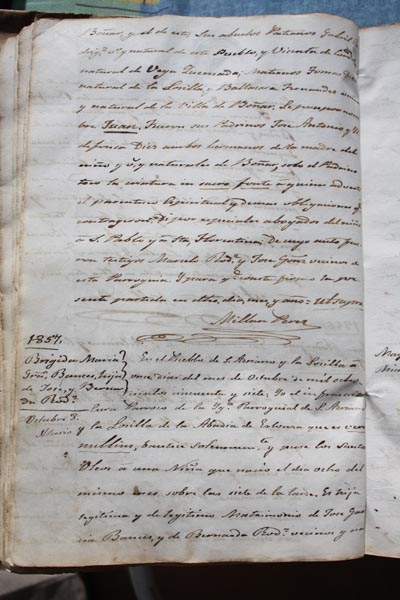 Boñar, y el de este, Sus abuelos Paternos Gabriel
y natural de este Pueblo, y Vicenta de
natural de Vega Quemada; Maternos Tomas
natural de la Losilla y Baltasara Fernandez
y natural de la Villa de Boñar. Se puso por nom
bre Juan, Fueron sus Padrinos Jose Antonio y
Diez ambos hermanos de la madre del
niño y naturales de Boñar, solo el Padrino
toco la criatura in sacro fonte a quien adverti
el parentesco Espiritual y demas obligaciones q
contrageron. Di por especiales abogados del niño
a S. Pablo y a Sta. Florentina; De cuyo acto fue
ron testigos Marcelo Rodz. y Jose Garz. vecinos de
esta Parroquia. Y para q conste firmo la pre
sente partida en dicho dia, mes, y año = ut supra
Millan Perez
1857.
Brigida Maria
Garz. Bances, hija
de Jose, y Berna
da Rodz.
Octubre 8.
En el Pueblo de S. Adriano y la Losilla a
once dias del mes de Octubre de mil ocho
cientos cincuenta y siete: Yo el infrascrito
Cura Parroco de la Yga. Parroquial de S. Adriano
y la Losilla de la Abadia de
nullius, bautice solemnemte. y puse los Santos
Oleos a una Niña que nacio el dia ocho del
mismo mes sobre las siete de la tarde. Es hija
legitima y de legitimo Matrimonio de Jose Gar
cia Bances, y de Bernarda Rodz. vecinos y na